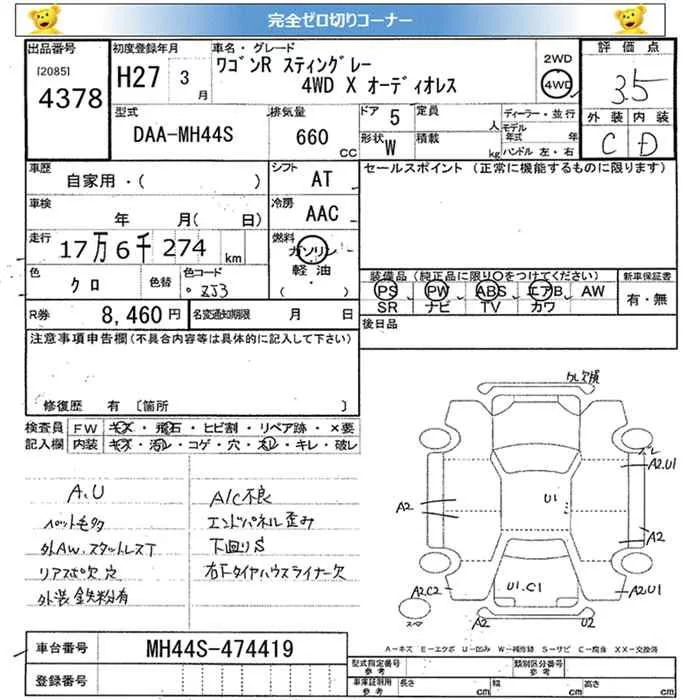 完全ゼロ切りコーナー
出品番号
[2085]
4378
初度登録年月
H27 3月
車名・グレード
ワゴンR スティングレー
4WD X オーディオレス
2WD
4WD
評価点
3.5
外装 内装
C D
型式
DAA-MH44S
排気量
660
CC
ドア 5
定員
人
形状 W
積載
kg
ディーラー・並行
モデル年式 年
ハンドル 左・右
車歴
自家用・( )
シフト
AT
セールスポイント (正常に機能するものに限ります)
車検
年 月( 日)
冷房
AAC
走行
17万6千274 km
燃料
ガソリン
軽油
( )
色
クロ
色替
色コード
ZJ3
装備品(純正品に限り○をつけてください)
PS PW ABS エアB AW
SR ナビ TV カワ
新車保証書
有・無
R券
8,460円
名変通知期限 月 日
後日品
注意事項申告欄(不具合内容等は具体的に記入して下さい)
修復歴 有 〔箇所 〕
検査員記入欄
FW キズ・飛石・ヒビ割・リペア跡・×要
内装 キズ・汚レ・コゲ・穴・スレ・キレ・破レ
A.U
ペット毛多
外AW.スタットレスT
リアスポ欠 穴
外装 鉄粉有
A/C不良
エンドパネル歪み
下廻りS
右Fタイヤハウスライナー欠
クレ欠損
ズレ
A2.U1
U1
A2
A2
A2C2
U1.C1
A2U1
A2
U2
スペア
A-キズ E-エクボ U-凹み W-補修跡 S-サビ C-腐食 XX-交換済
車台番号
MH44S-474419
登録番号
型式指定番号
参考
類別区分番号
参考
車庫証明用
参考
長さ cm
幅 cm
高さ cm